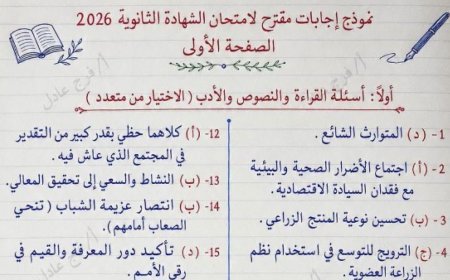 نموذج إجابات مقترح لامتحان الشهادة الثانوية 2026
الصفحة الأولى
أولاً: أسئلة القراءة والنصوص والأدب (الاختيار من متعدد)
1- (د) المتوارث الشائع.
2- (أ) اجتماع الأضرار الصحية والبيئية
مع فقدان السيادة الاقتصادية.
3- (ب) تحسين نوعية المنتج الزراعي.
4- (ج) الترويج للتوسع في استخدام نظم
الزراعة العضوية.
12- (أ) كلاهما حظي بقدر كبير من التقدير
في المجتمع الذي عاش فيه.
13- (ب) النشاط والسعي إلى تحقيق المعالي.
14- (ب) انتصار عزيمة الشباب (تنحي
الصعاب أمامهم).
15- (د) تأكيد دور المعرفة والقيم في
رقي الأمم.
أ/ فرج عادل
أ/ فرج عادل
أ/ فرج عادل